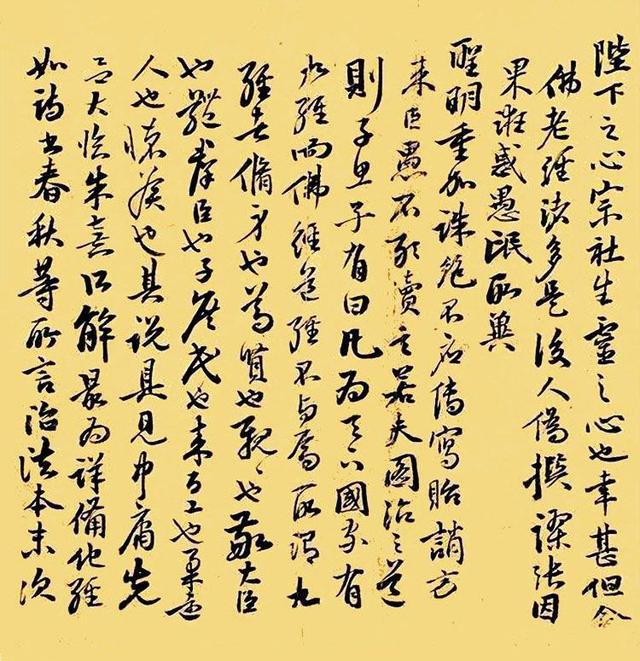 陛下之心宗社生靈之心也幸甚但念
佛老經法多是後人偽撰謬張因
果誑惑愚氓所冀
聖明重加誅絕不啟傳寫貽誚方
來臣愚不能賣之若夫圖治之道
則子思子有曰凡為天下國家有
九經而佛經道經不與焉所謂九
經者脩身也尊賢也親親也敬大臣
也體群臣也子庶民也来百工也柔遠
人也懷諸侯也其說具見中庸先
臣大
朱熹所解最為詳備他經
如詩書春秋等所言治法本末次